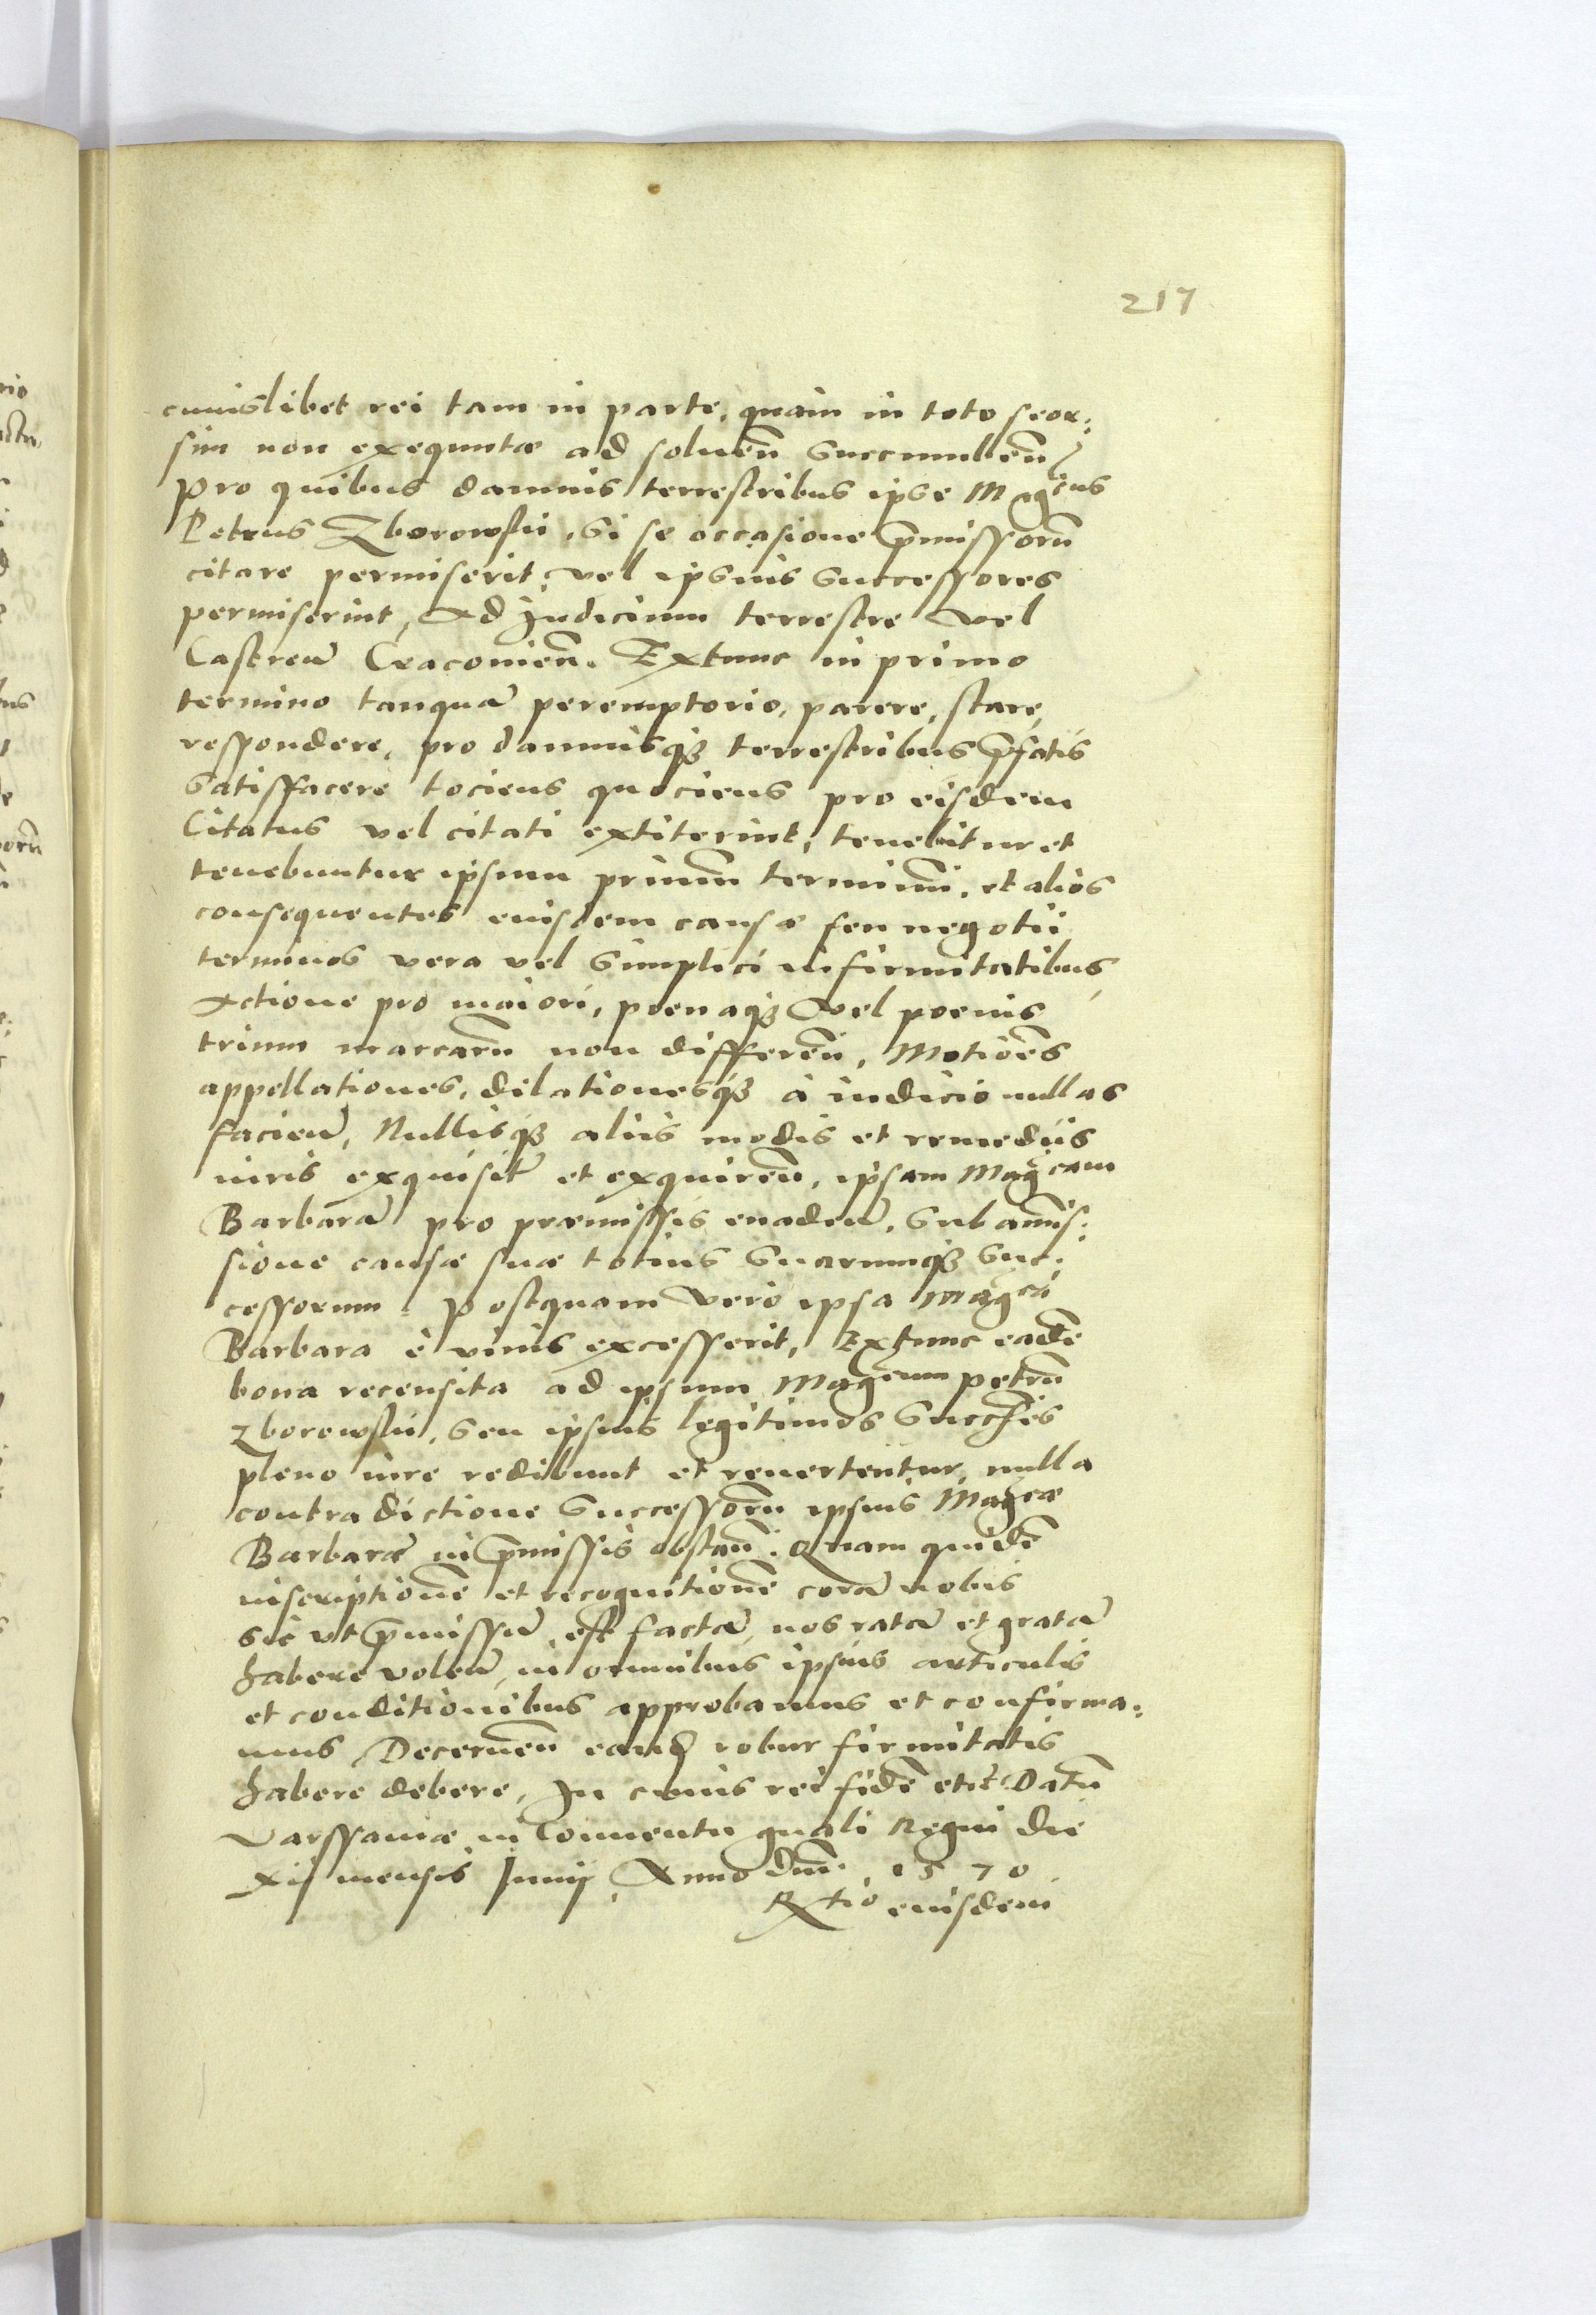 217
cuiuslibet rei tam in parte, quam in toto seor:
sim non exequutæ ad soluen̄ succumben̄
pro quibus damnis terrestribus ipse Mag̃cus
Petrus Zborowski, si se occasione p̄missorū
citare permiserit, vel ipsius successores
permiserint, Ad Judicium terrestre vel
Castren̄ Cracovien̄. Extunc in primo
termino tanquā peremptorio, parere, stare,
respondere, pro damnisq₃ terrestribus p̄fatis
satisfacere tociens quociens pro eisdem
Citatus vel citati extiterint, tenebitur et
tenebuntur ipsum primū terminū, et alios
consequentes eiusdem causæ seu negotii
terminos vera vel simplici infirmitatibus,
Actione pro maiori, poenaq₃ vel poenis
trium marcarū non differen̄, Motiões
appellationes, dilationesq₃ à iudicio nullas
facien̄, Nullisq₃ aliis modis et remediis
iuris exquisit̄ et exquiren̄, ipsam Mag̃cam
Barbarā pro præmissis euaden̄, sub amis:
sione causæ suæ totius suarumq₃ suc:
cessorum. Postquam vero ipsa Mag̃ca
Barbara è viuis excesserit, Extunc eadē
bona recensita ad ipsum Mag̃cum Petrū
Zborowski, seu ipsius legitimos succ̄res
pleno iure redibunt et reuertentur, nulla
contradictione successorū ipsius Mag̃cæ
Barbaræ in p̄missis obstan̄. Quam quidē
inscriptionē et recognitionē corā nobis
sic vt p̄missū est factā, nos ratā et gratā
habere volen̄, in omnibus ipsius articulis
et conditionibus approbamus et confirma:
mus Decernen̄ eand̄ robur firmitatis
habere debere, In cuius rei fidē etc̄ Datū
Varssaviæ in Conventu gn̄ali Regni die
xij mensis Junij, Anno dn̄i. 1570
R̄tio eiusdem